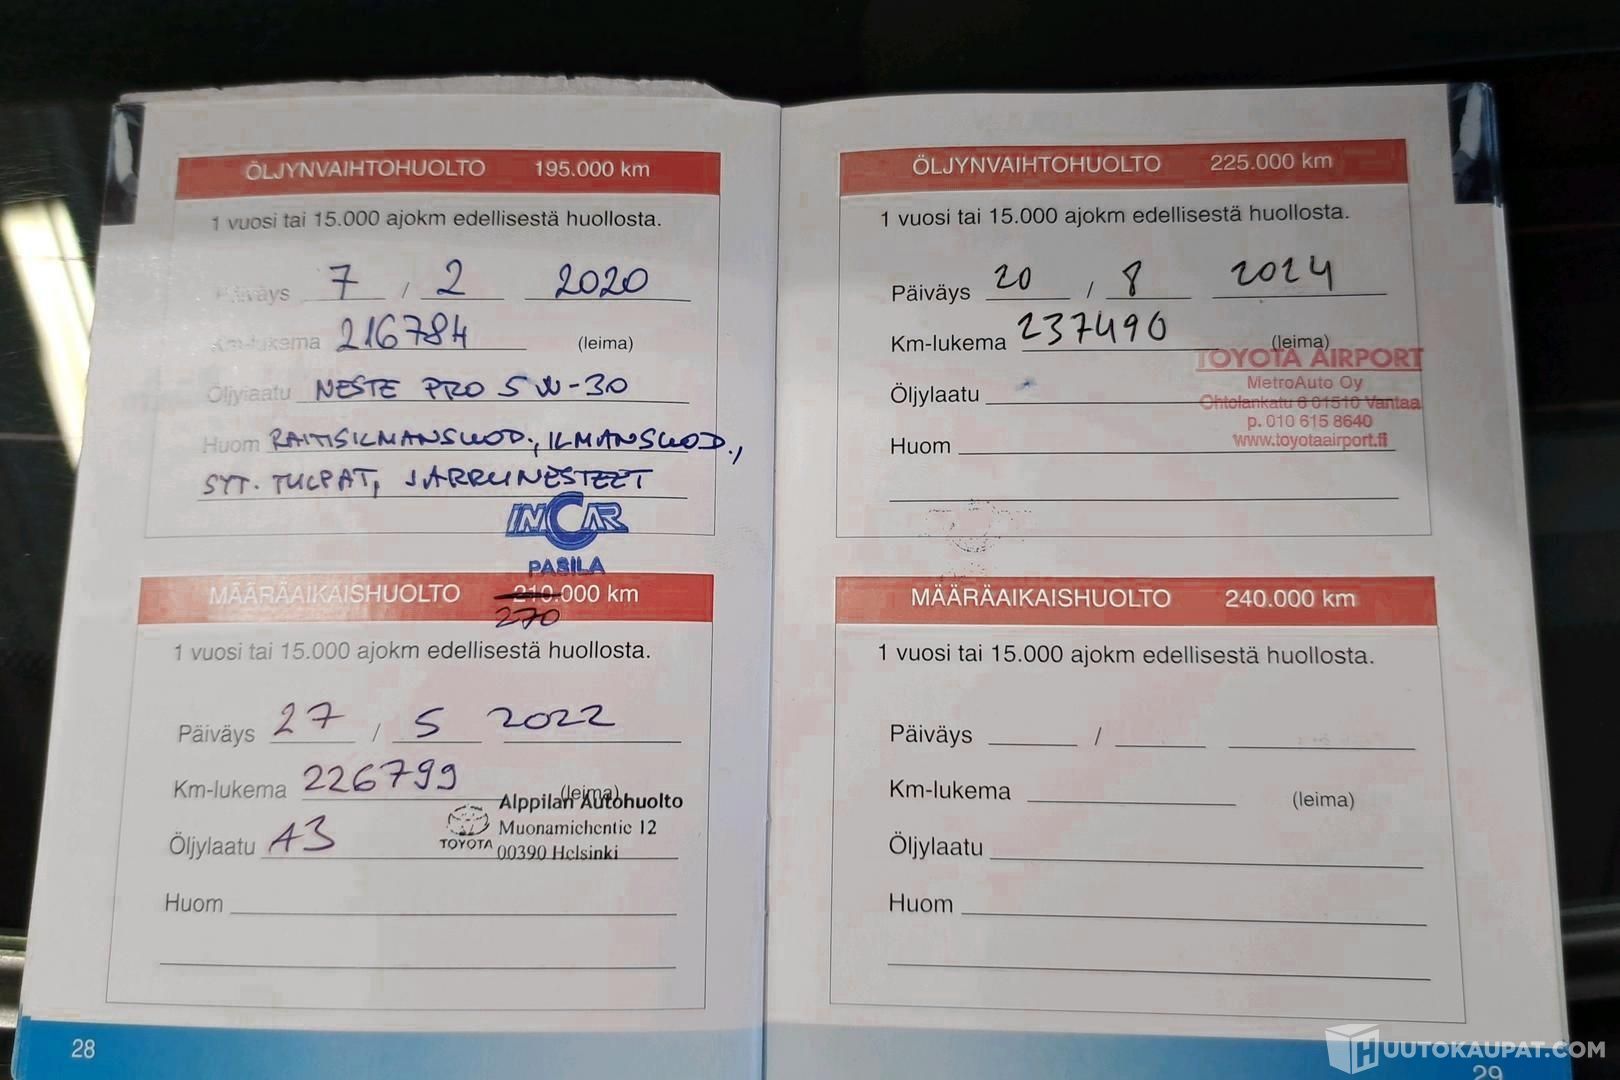 ÖLJYNVAIHTOHUOLTO 195.000 km
1 vuosi tai 15.000 ajokm edellisestä huollosta.
Päiväys 7 / 2 2020
Km-lukema 216784 (leima)
Öljylaatu NESTE PRO 5W-30
Huom RAITISILMANSUOD., ILMANSUOD.,
SYT. TULPAT, JARRUNESTEET
INCAR
PASILA
MÄÄRÄAIKAISHUOLTO 210.000 km
270
1 vuosi tai 15.000 ajokm edellisestä huollosta.
Päiväys 27 / 5 2022
Km-lukema 226799 (leima)
Alppilan Autohuolto
Öljylaatu A3
Muonamiehentie 12
TOYOTA 00390 Helsinki
Huom
28
ÖLJYNVAIHTOHUOLTO 225.000 km
1 vuosi tai 15.000 ajokm edellisestä huollosta.
Päiväys 20 / 8 2024
Km-lukema 237490 (leima)
TOYOTA AIRPORT
MetroAuto Oy
Öljylaatu
Ohtolankatu 6 01510 Vantaa
p. 010 615 8640
www.toyotaairport.fi
Huom
MÄÄRÄAIKAISHUOLTO 240.000 km
1 vuosi tai 15.000 ajokm edellisestä huollosta.
Päiväys /
Km-lukema (leima)
Öljylaatu
Huom
29
HUUTOKAUPAT.COM